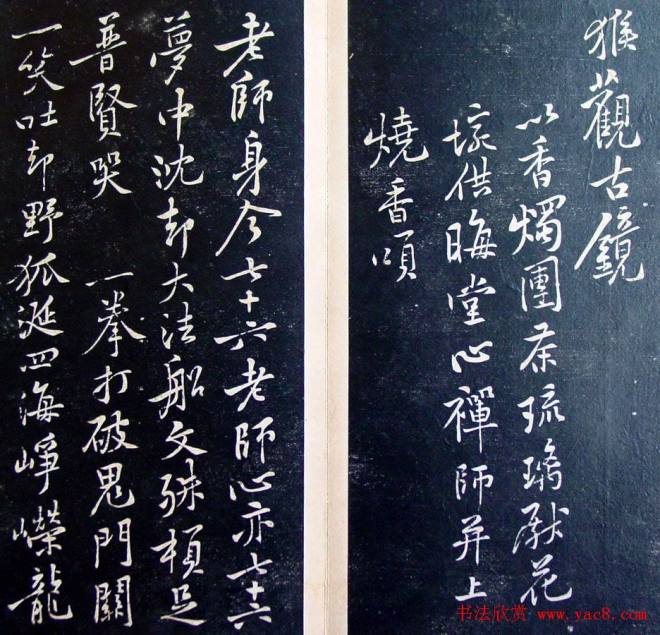 猴觀古鏡
以香燭團茶琉璃献花
埦供晦堂心禪師并上
燒香頌
老師身今七十六老師心亦七十六
夢中沈却大法船文殊頓足
普賢哭 一拳打破鬼門關
一笑吐却野狐涎四海崢嶸龍
书法欣赏 www.yac8.com